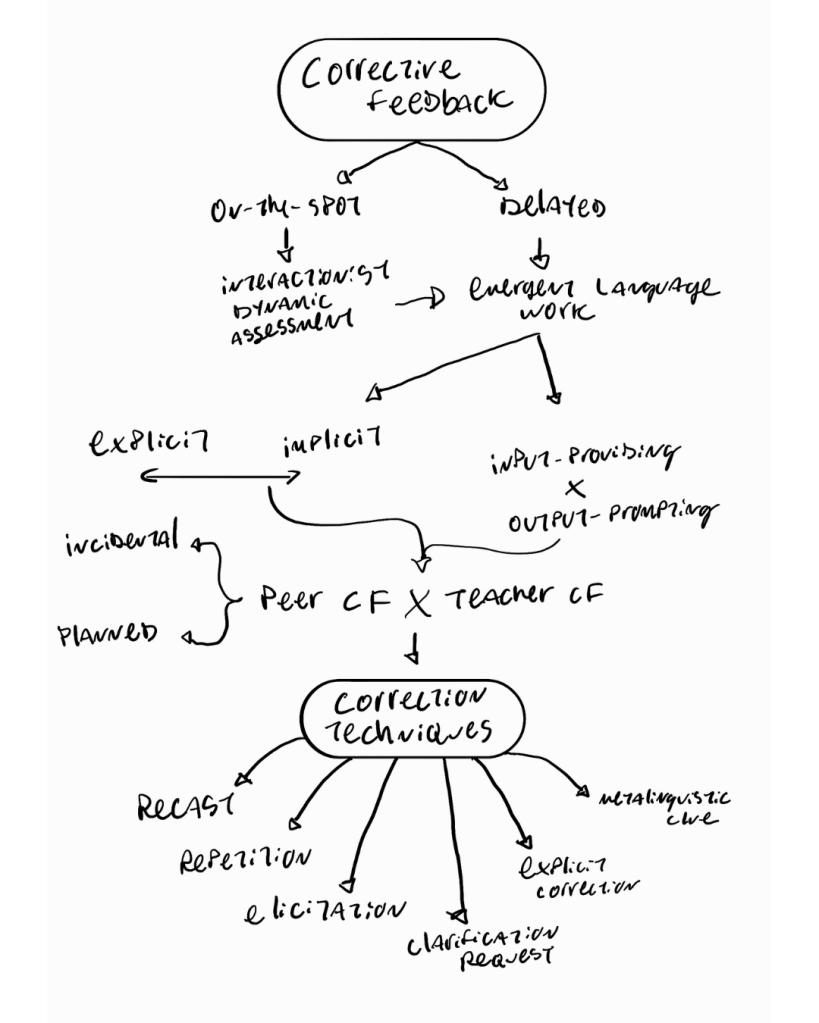 Corrective
Feedback
On-the-spot
Delayed
Interactionist
Dynamic
Assessment
Emergent Language
Work
Explicit
Implicit
Input-providing
X
Output-prompting
Incidental
Planned
Peer CF X Teacher CF
Correction
Techniques
Recast
Repetition
Elicitation
Clarification
Request
Explicit
correction
Metalinguistic
clue